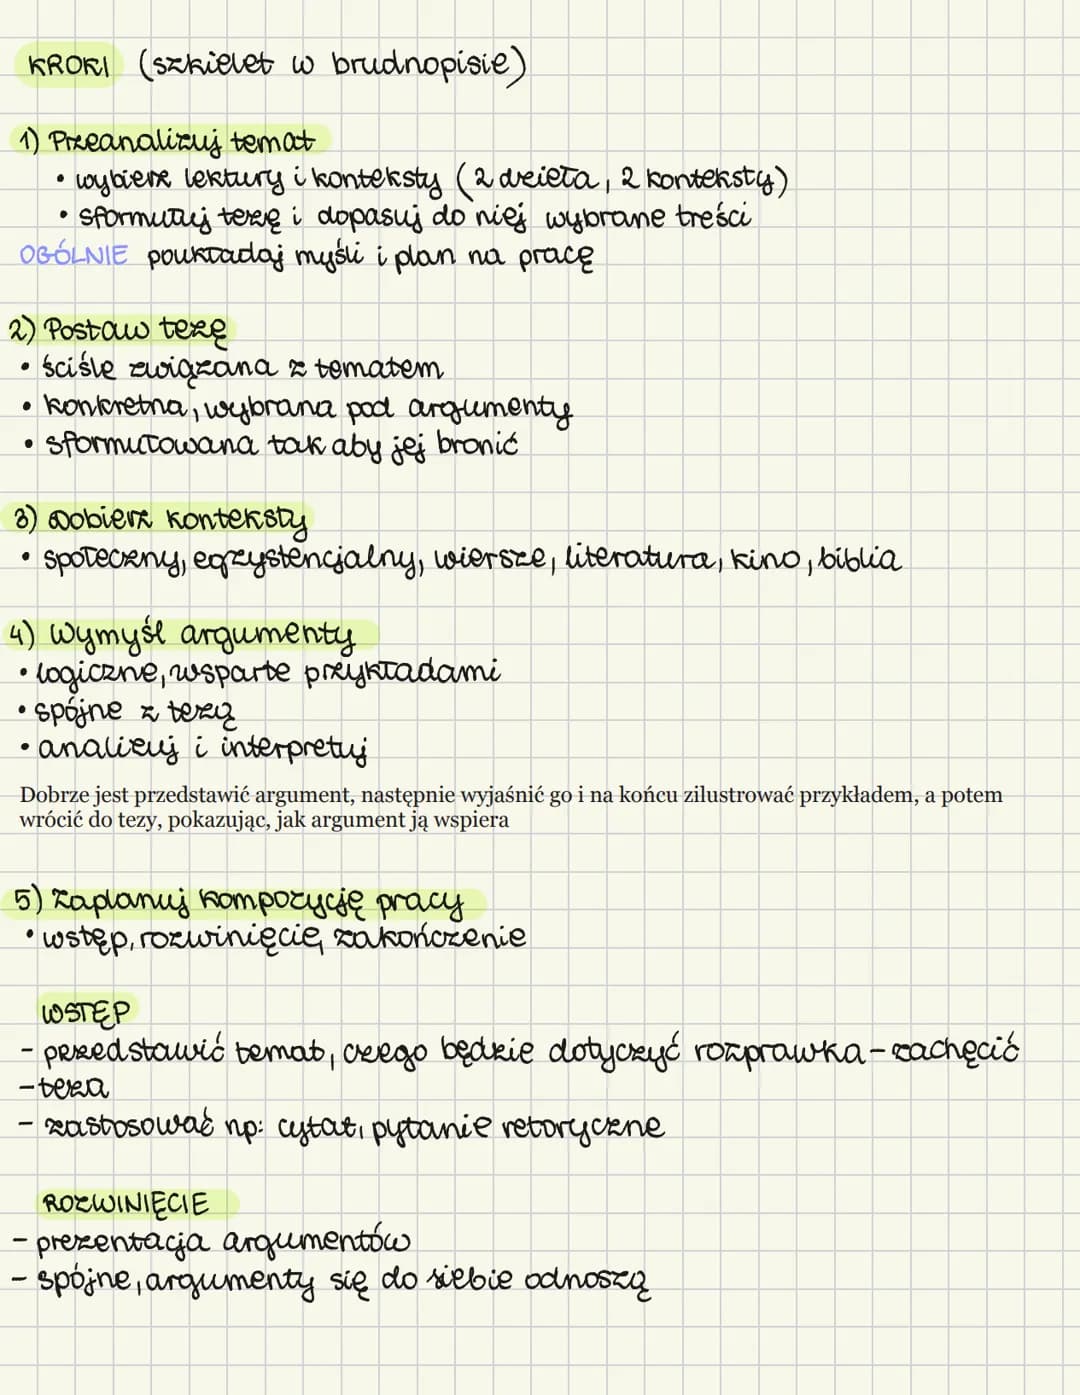 KROKI (szkielet w brudnopisie)
1) Przeanalizuj temat
• wybierz lektury i konteksty (2 dzieła, 2 konteksty)
• sformułuj tezę i dopasuj do niej wybrane treści
OGÓLNIE poukładaj myśli i plan na pracę
2) Postaw tezę
• ściśle związana z tematem
• konkretna, wybrana pod argumenty
• sformułowana tak aby jej bronić
3) Dobierz konteksty
• społeczny, egzystencjalny, wiersze, literatura, kino, biblia
4) Wymyśl argumenty
• logiczne, wsparte przykładami
• spójne z tezą
• analizuj i interpretuj
Dobrze jest przedstawić argument, następnie wyjaśnić go i na końcu zilustrować przykładem, a potem
wrócić do tezy, pokazując, jak argument ją wspiera
5) Zaplanuj kompozycję pracy
• wstęp, rozwinięcie, zakończenie
WSTĘP
- przedstawić temat, czego będzie dotyczyć rozprawka - zachęcić
- teza
- zastosować np: cytat, pytanie retoryczne
ROZWINIĘCIE
- prezentacja argumentów
- spójne, argumenty się do siebie odnoszą